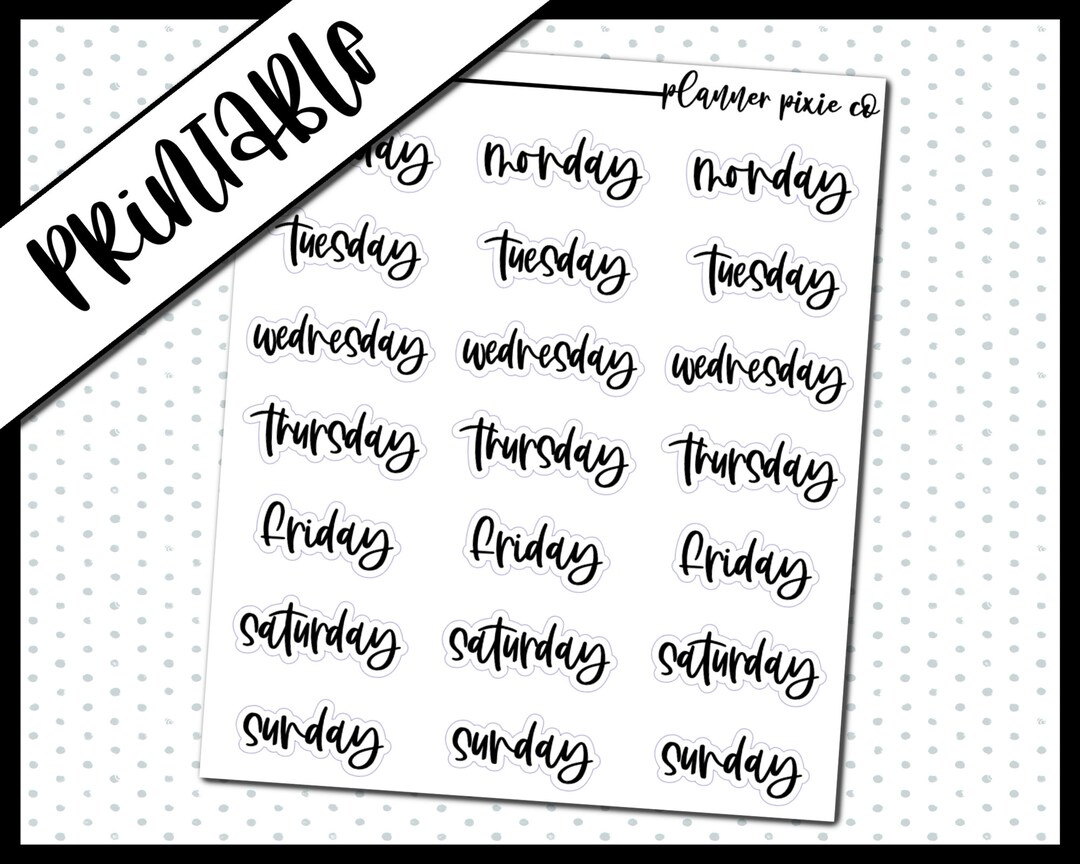 PRiNTABLE
planner pixie co
day monday monday
tuesday tuesday tuesday
wednesday wednesday wednesday
thursday thursday thursday
friday friday friday
saturday saturday saturday
sunday sunday sunday